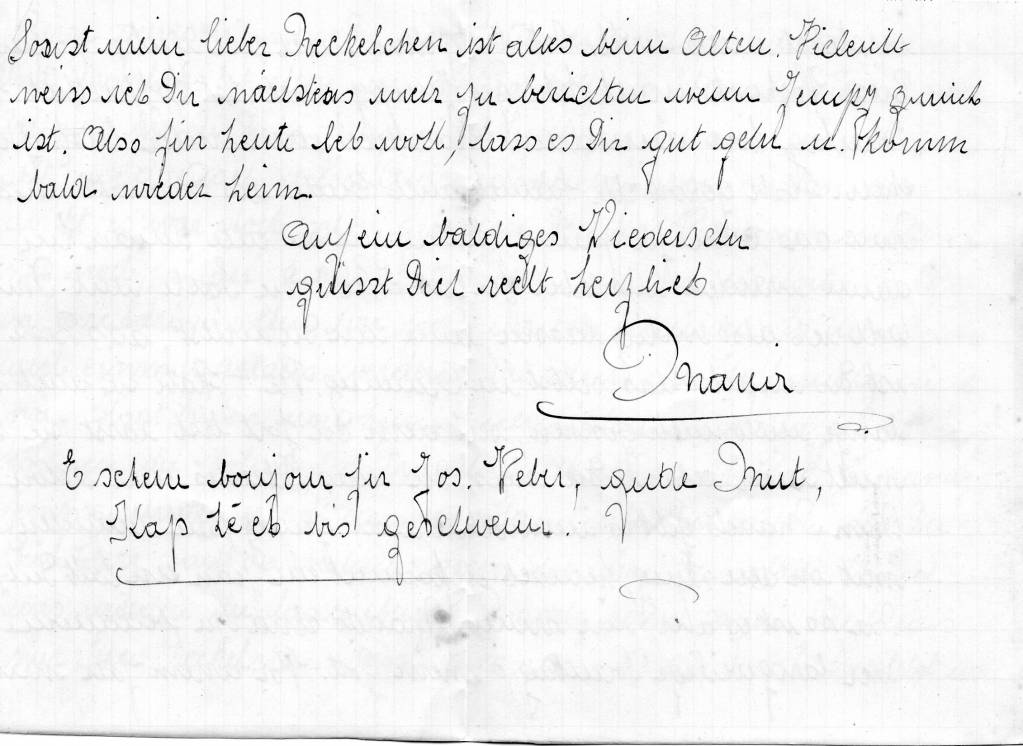 Sonst mein lieber Freckelchen ist alles beim Alten. Vielleilt
weiss ich Dir nächstens mehr zu berichten wenn Jempy zurück
ist. Also für heute leb wohl, lass es Dir gut gehn u. komm
bald wieder heim.
Auf ein baldiges Wiedersehn
grüsst Dich recht herzlich
E schene boujour fir Jos. Weber, gude Mut,
Kap héch bis geschwenn.